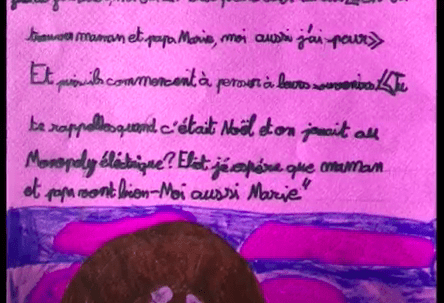 maman et papa Marie, moi aussi j'ai peur»
Et puis ils commencent à penser à leurs souvenirs «Tu
te rappelles quand c'était Noël et on jouait au
Monopoly éléctrique? Elot jéspére que maman
et papa vont bien-Moi aussi Marie"